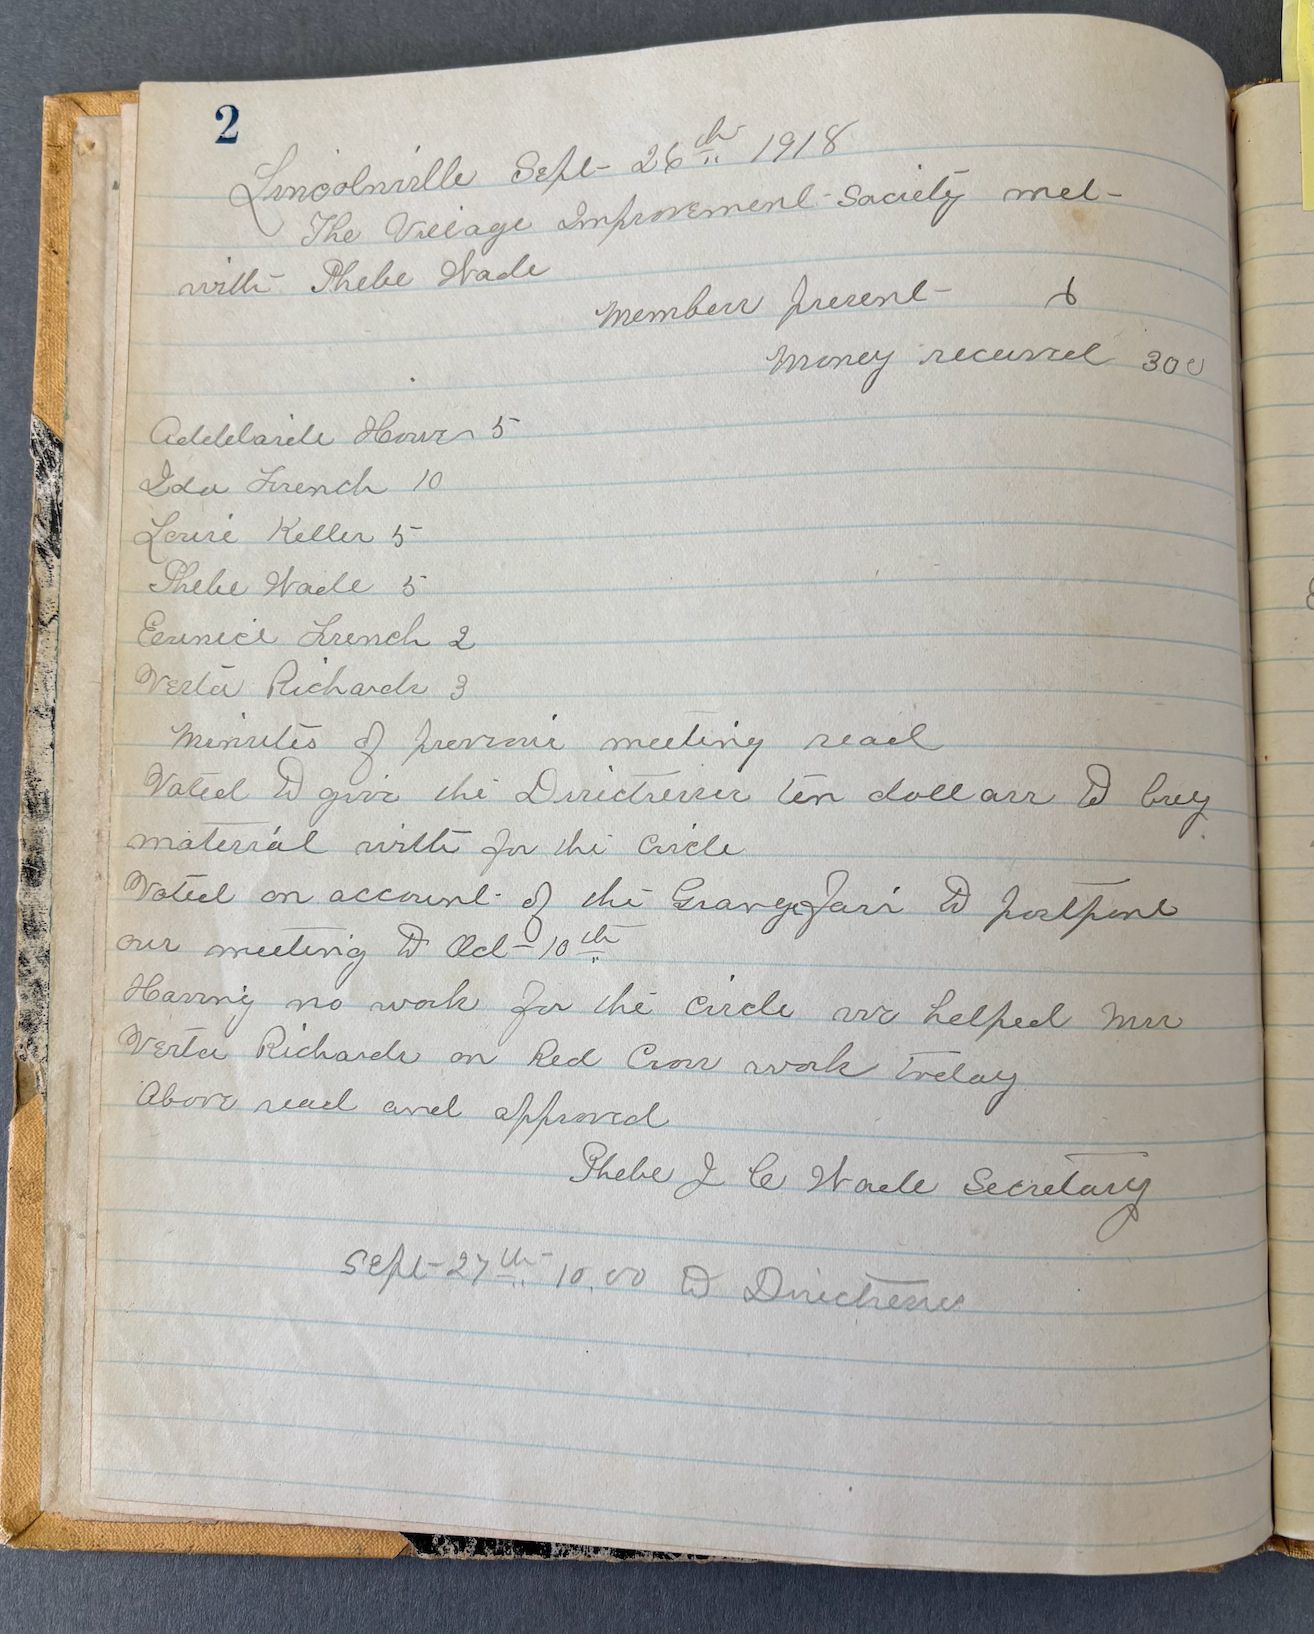 2
Lincolnville Sept 26th 1918
The Village Improvement Society met
with Phebe Wade
Members present 6
Money received 30c
Addelaide Howe 5
Ida French 10
Louise Keller 5
Phebe Wade 5
Eunice French 2
Verta Richards 3
Minutes of previous meeting read
Voted to give the Directresses ten dollars to buy
material with for the circle
Voted on account of the Grange fair to postpone
our meeting to Oct 10th
Having no work for the circle we helped Mrs
Verta Richards on Red Cross work today
Above read and approved
Phebe J C Wade Secretary
Sept 27th 10.00 to Directress